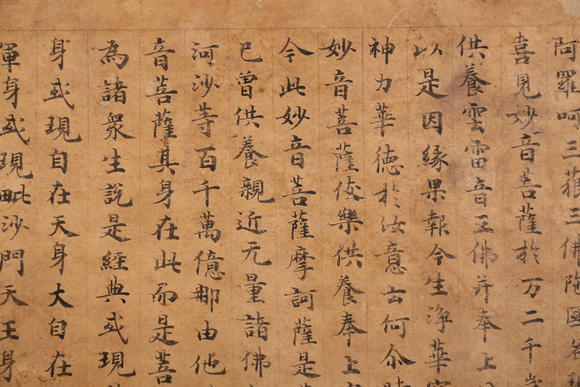 阿羅呵三藐三佛陁國名
喜見妙音菩薩於万二千歲
供養雲雷音王佛并奉上
以是因緣果報今生淨華
神力華德於汝意云何尒時
妙音菩薩伎樂供養奉上
今此妙音菩薩摩訶薩是
已曾供養親近无量諸佛
河沙等百千萬億那由他
音菩薩其身在此而是菩
為諸衆生說是經典或現
身或現自在天身大自在
軍身或現毗沙門天王身